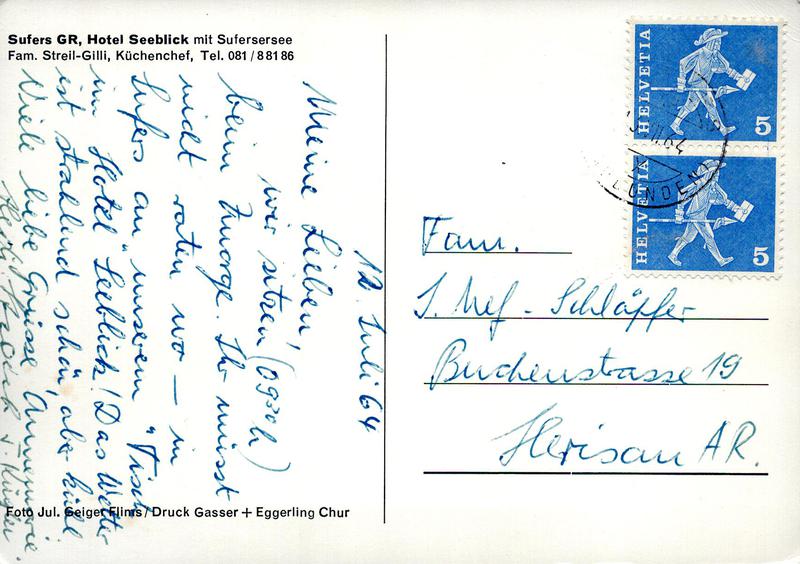 Sufers GR, Hotel Seeblick mit Sufersersee
Fam. Streil-Gilli, Küchenchef, Tel. 081/8 81 86
12. Juli 64
Meine Lieben!
wir sitzen (09³⁰ h)
beim Zmorge. Ihr müsst
nicht raten wo – in
Sufers an "unserem" Tisch
im Hotel Seeblick! Das Wetter
ist strahlend schön, aber kühl.
Viele liebe Grüsse, Annemarie
Foto Jul. Geiger Flims/Druck Gasser + Eggerling Chur
HELVETIA
5
HELVETIA
5
Fam.
Schläpfer
Buchenstrasse 19
Herisau AR.